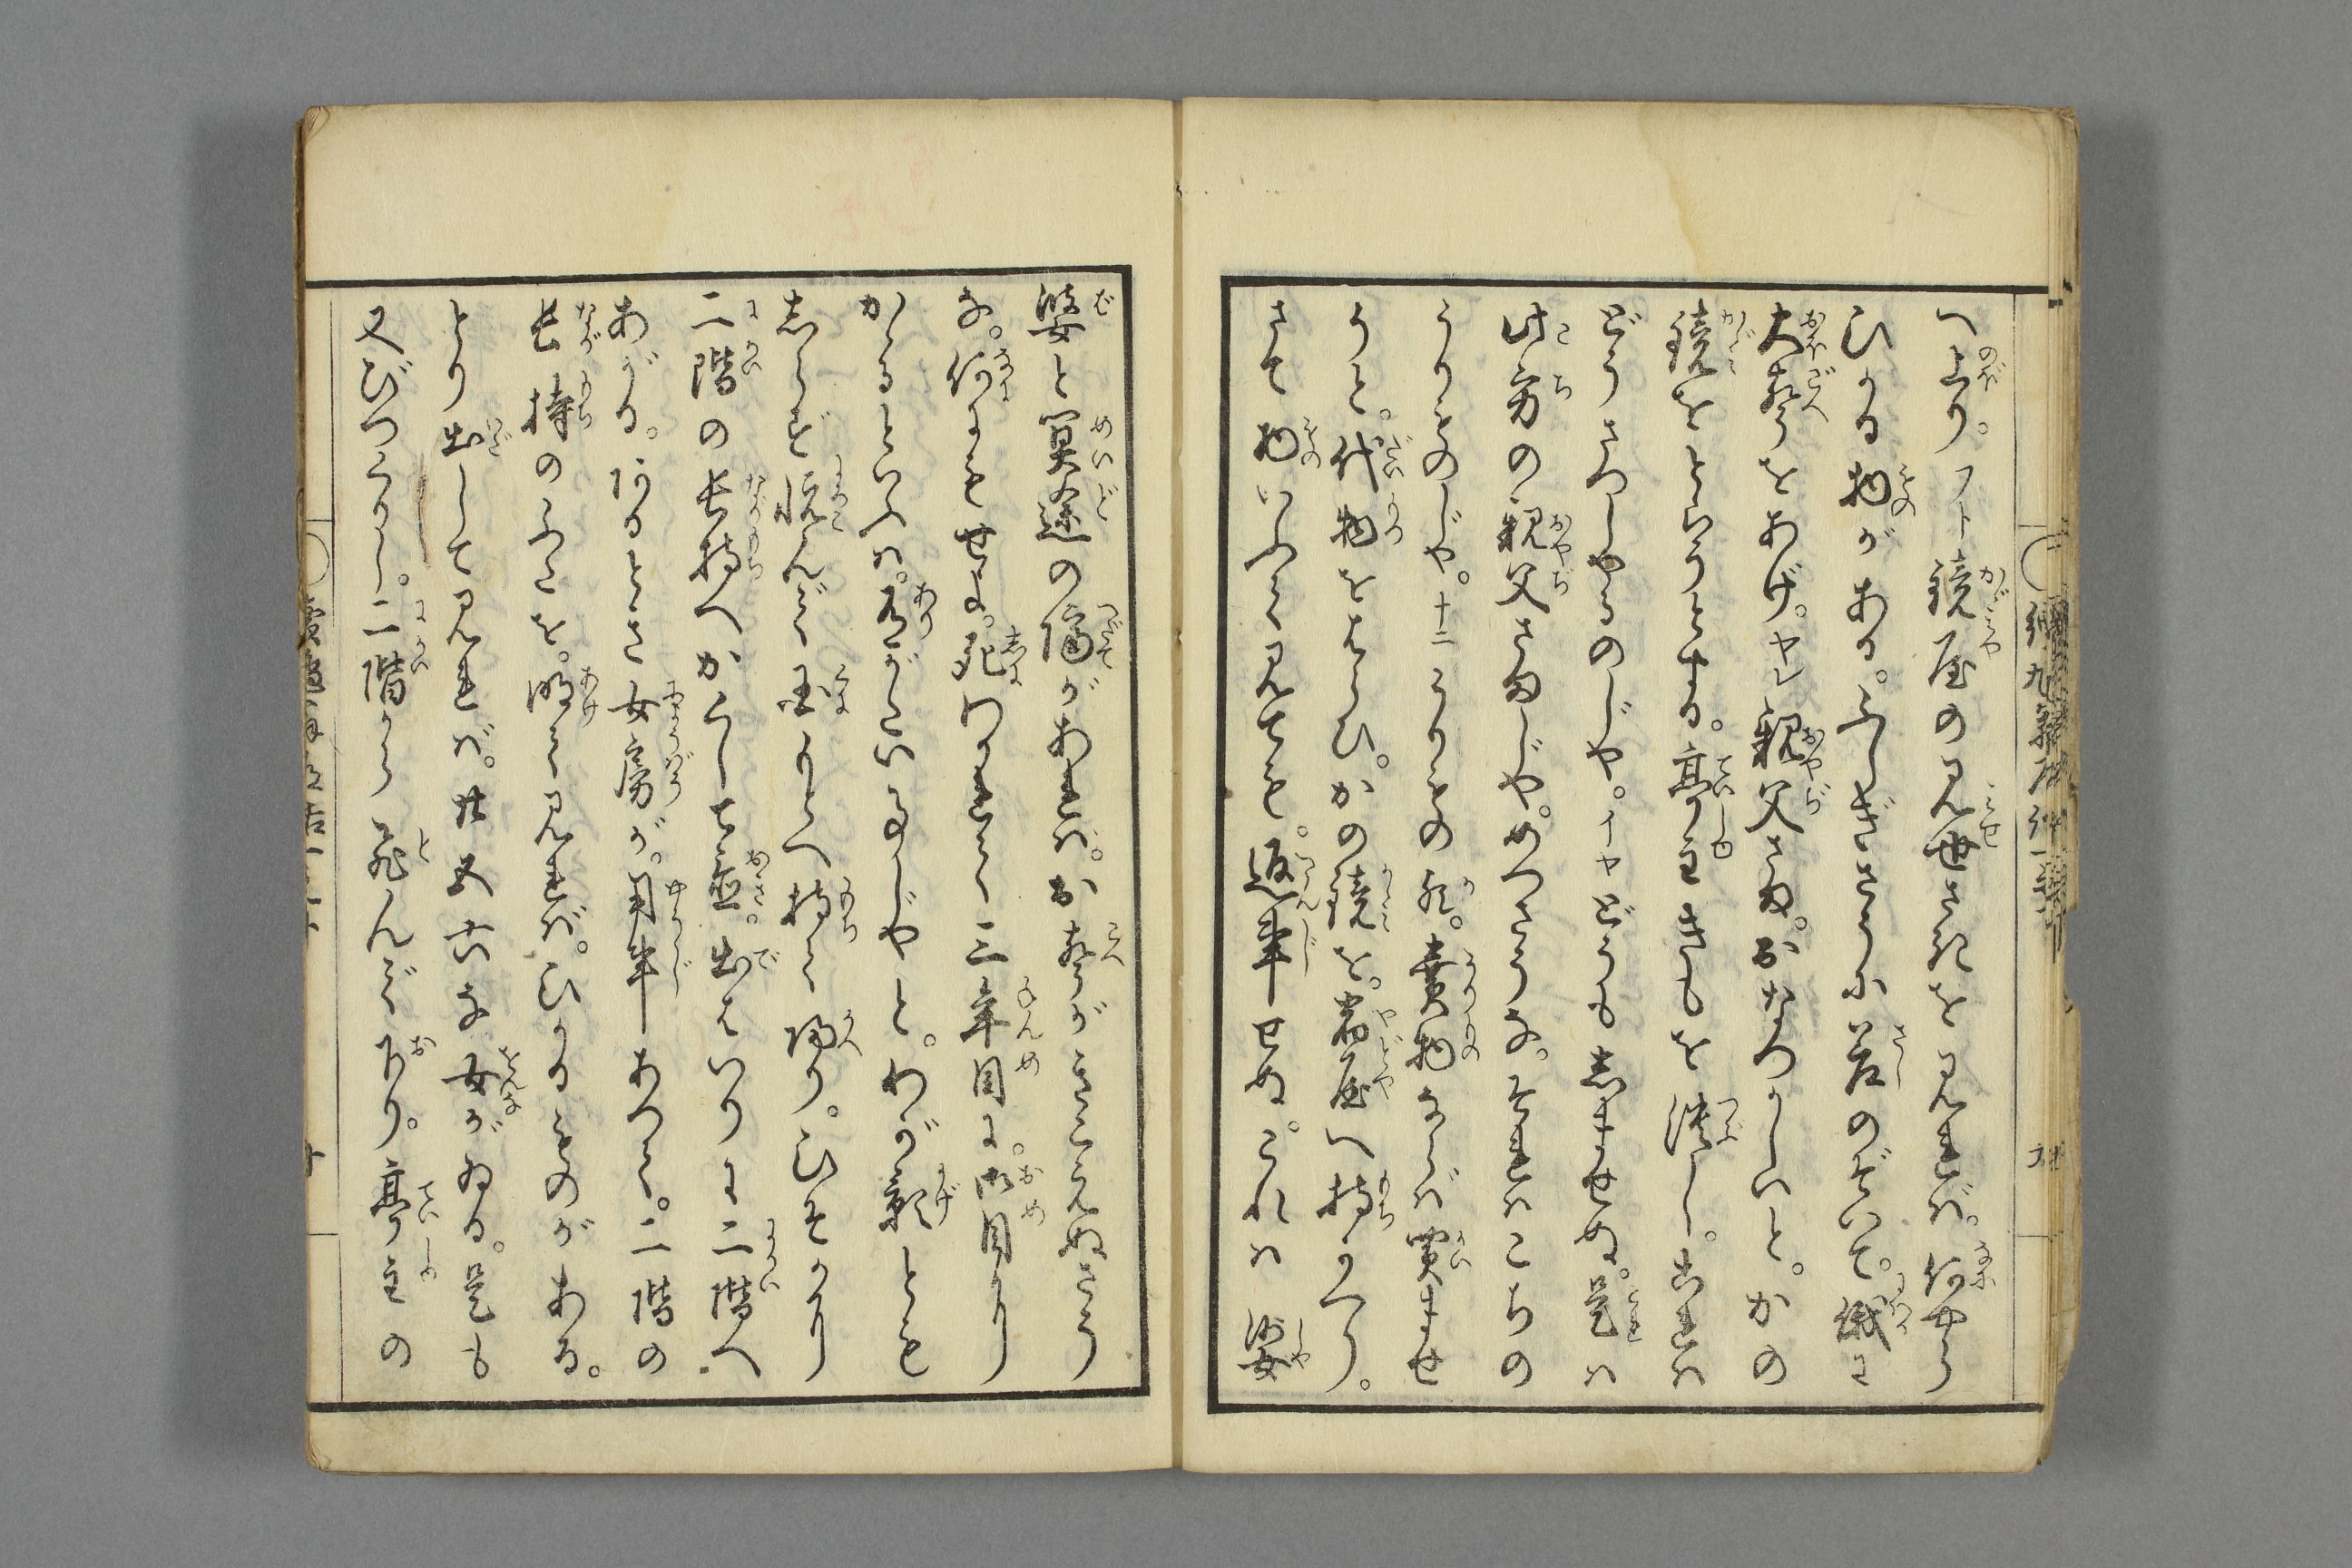 へ上り。フト鏡屋の見世さきを見れば。何やら
ひかる物がある。ふしぎさうに差のぞいて。俄に
大声をあげ。ヤレ親父さま。おなつかしいと。かの
鏡をとらうとする。亭主きもを潰し。これは
どうさつしやるのじや。イヤどうもしませぬ。是は
此方の親父さまじや。めつさうな。それはこちの
うりものじや。ナニうりものか。売物ならば買ませ
うと。代物をはらひ。かの鏡を。宿屋へ持かへり。
さて物いふて見ても。返事せぬ。これは娑
婆と冥途の隔があれば。お声がきこえぬさう
な。何にもせよ。死なれて三年目に。御目にかゝ
かゝるといふは。有がたい事じやと。わが影とも
しらず悦んで国かたへ持て帰り。ひそかに
二階の長持へかくし古。朝出はいりに二階へ
あがる。あるとき女房が。用事あつて。二階の
長持のふたを。明て見れば。ひかるものがある。
とり出して見れば。廿四五な女がゐる。是も
又びつくりし。二階から飛んで下り。亭主の